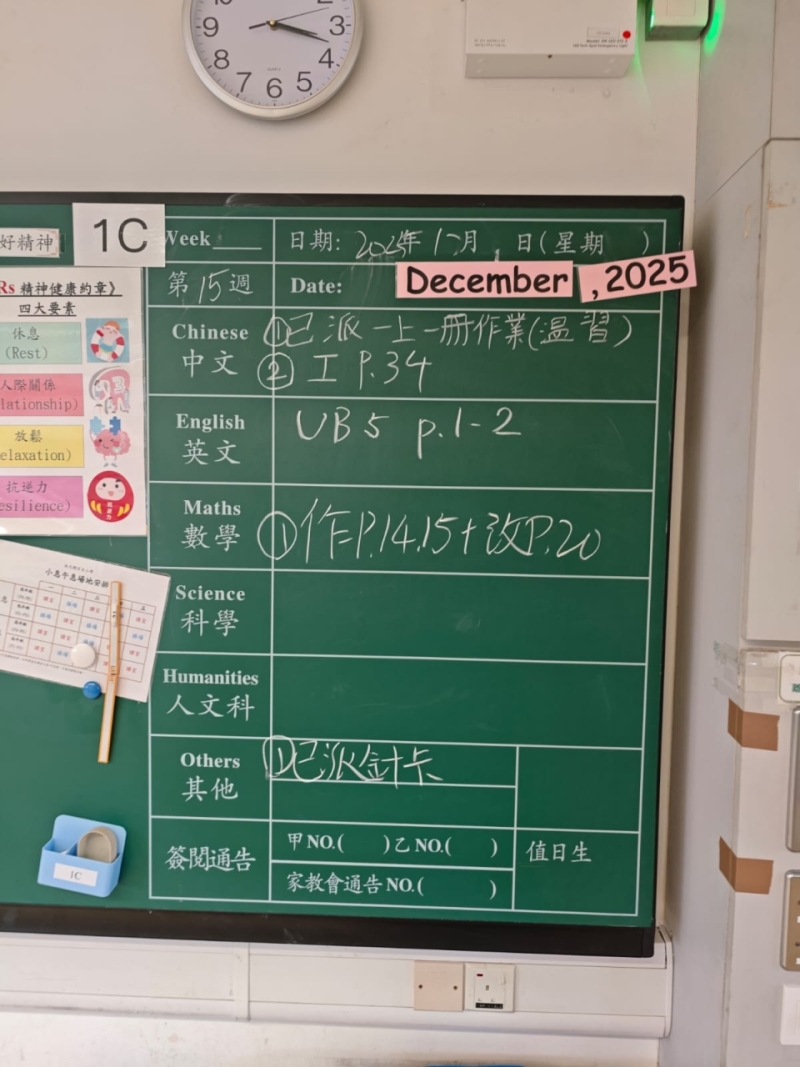 9 8 7 6 5 4 3
好精神
1C
Week____ 日期: 2025年12月 日(星期 )
第15週 Date: December , 2025
Rs 精神健康約章》
四大要素
休息
(Rest)
人際關係
lationship)
放鬆
elaxation)
抗逆力
esilience)
Chinese ①已派一上一冊作業(溫習)
中文 ② 工 P.34
English UB5 p.1-2
英文
Maths
數學 ①作P.14.15+改P.20
小息午息場地安排
Science
科學
Humanities
人文科
Others ①已派針卡
其他
簽閱通告 甲NO.( )乙NO.( ) 值日生
家教會通告NO.( )
1C